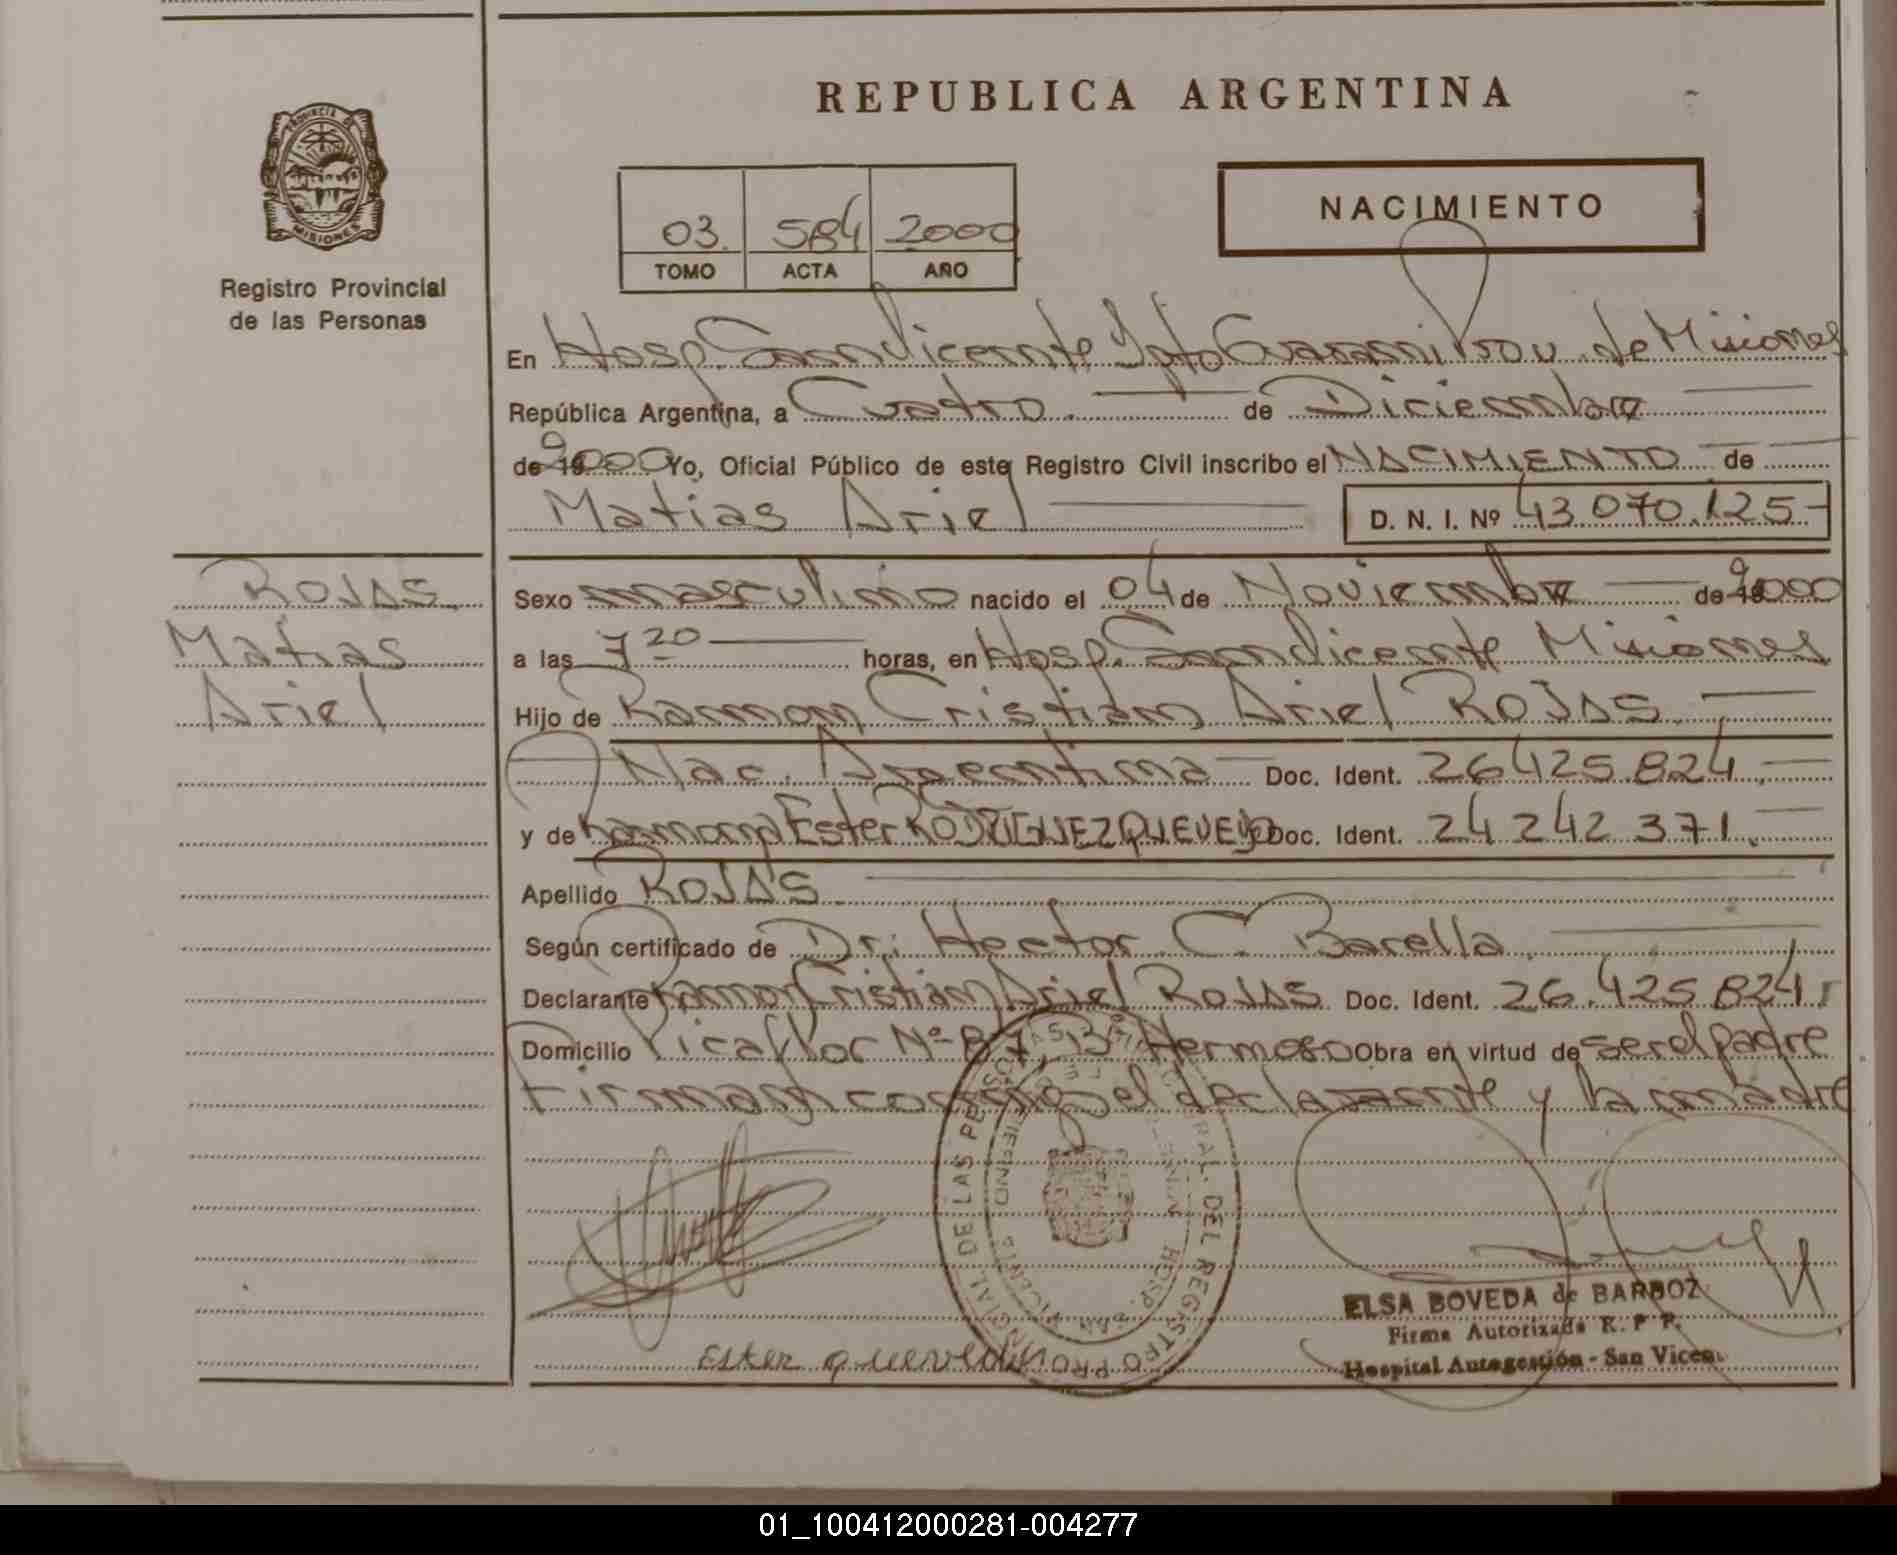 REPUBLICA ARGENTINA
PROVINCIA DE
MISIONES
Registro Provincial
de las Personas
03. 584 2000
TOMO ACTA AÑO
NACIMIENTO
En Hosp. San Vicente Dpto Guarani Prov. de Misiones
República Argentina, a Cuatro. de Diciembre
de 2000 Yo, Oficial Público de este Registro Civil inscribo el NACIMIENTO de
Matias Ariel D. N. I. Nº 43 070.125-
ROJAS
Matias
Ariel
Sexo masculino nacido el 04 de Noviembre de 2000
a las 7 20 horas, en Hosp. San Vicente Misiones
Hijo de Ramon Cristian Ariel ROJAS.
Nac. Argentina Doc. Ident. 26425824.
y de Ramona Ester RODRIGUEZ QUEVEDO Doc. Ident. 24242371.
Apellido ROJAS.
Según certificado de Dr. Hector C. Barella
Declarante Ramon Cristian Ariel ROJAS Doc. Ident. 26.425824
Domicilio Picaflor Nº 87, Bº Hermoso Obra en virtud de ser el padre
Firman conmigo el declarante y la madre
REGISTRO PROVINCIAL DE LAS PERSONAS
HOSP. SAN VICENTE
ELSA BOVEDA de BARBOZ
Firma Autorizada R. P P.
Hospital Autogestión - San Vicen
Ester quevedo
01_100412000281-004277